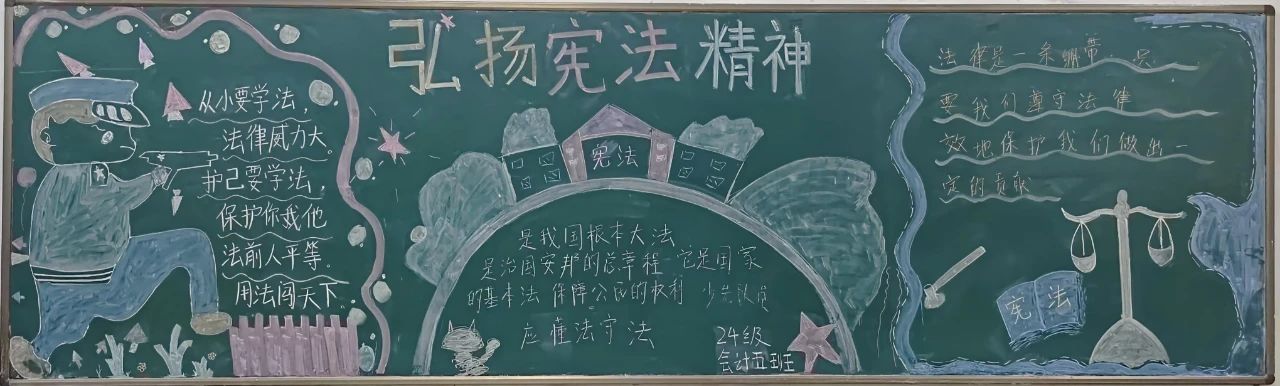 弘扬宪法精神
从小要学法，
法律威力大。
护己要学法，
保护你我他
法前人平等。
用法闯天下。
宪法
是我国根本大法
是治国安邦的总章程 它是国家
的基本法 保障公民的权利 少先队员
应懂法守法
24级
会计五班
法律是一条绷带，只
要我们遵守法律
效地保护我们做出一
定的贡献
宪法